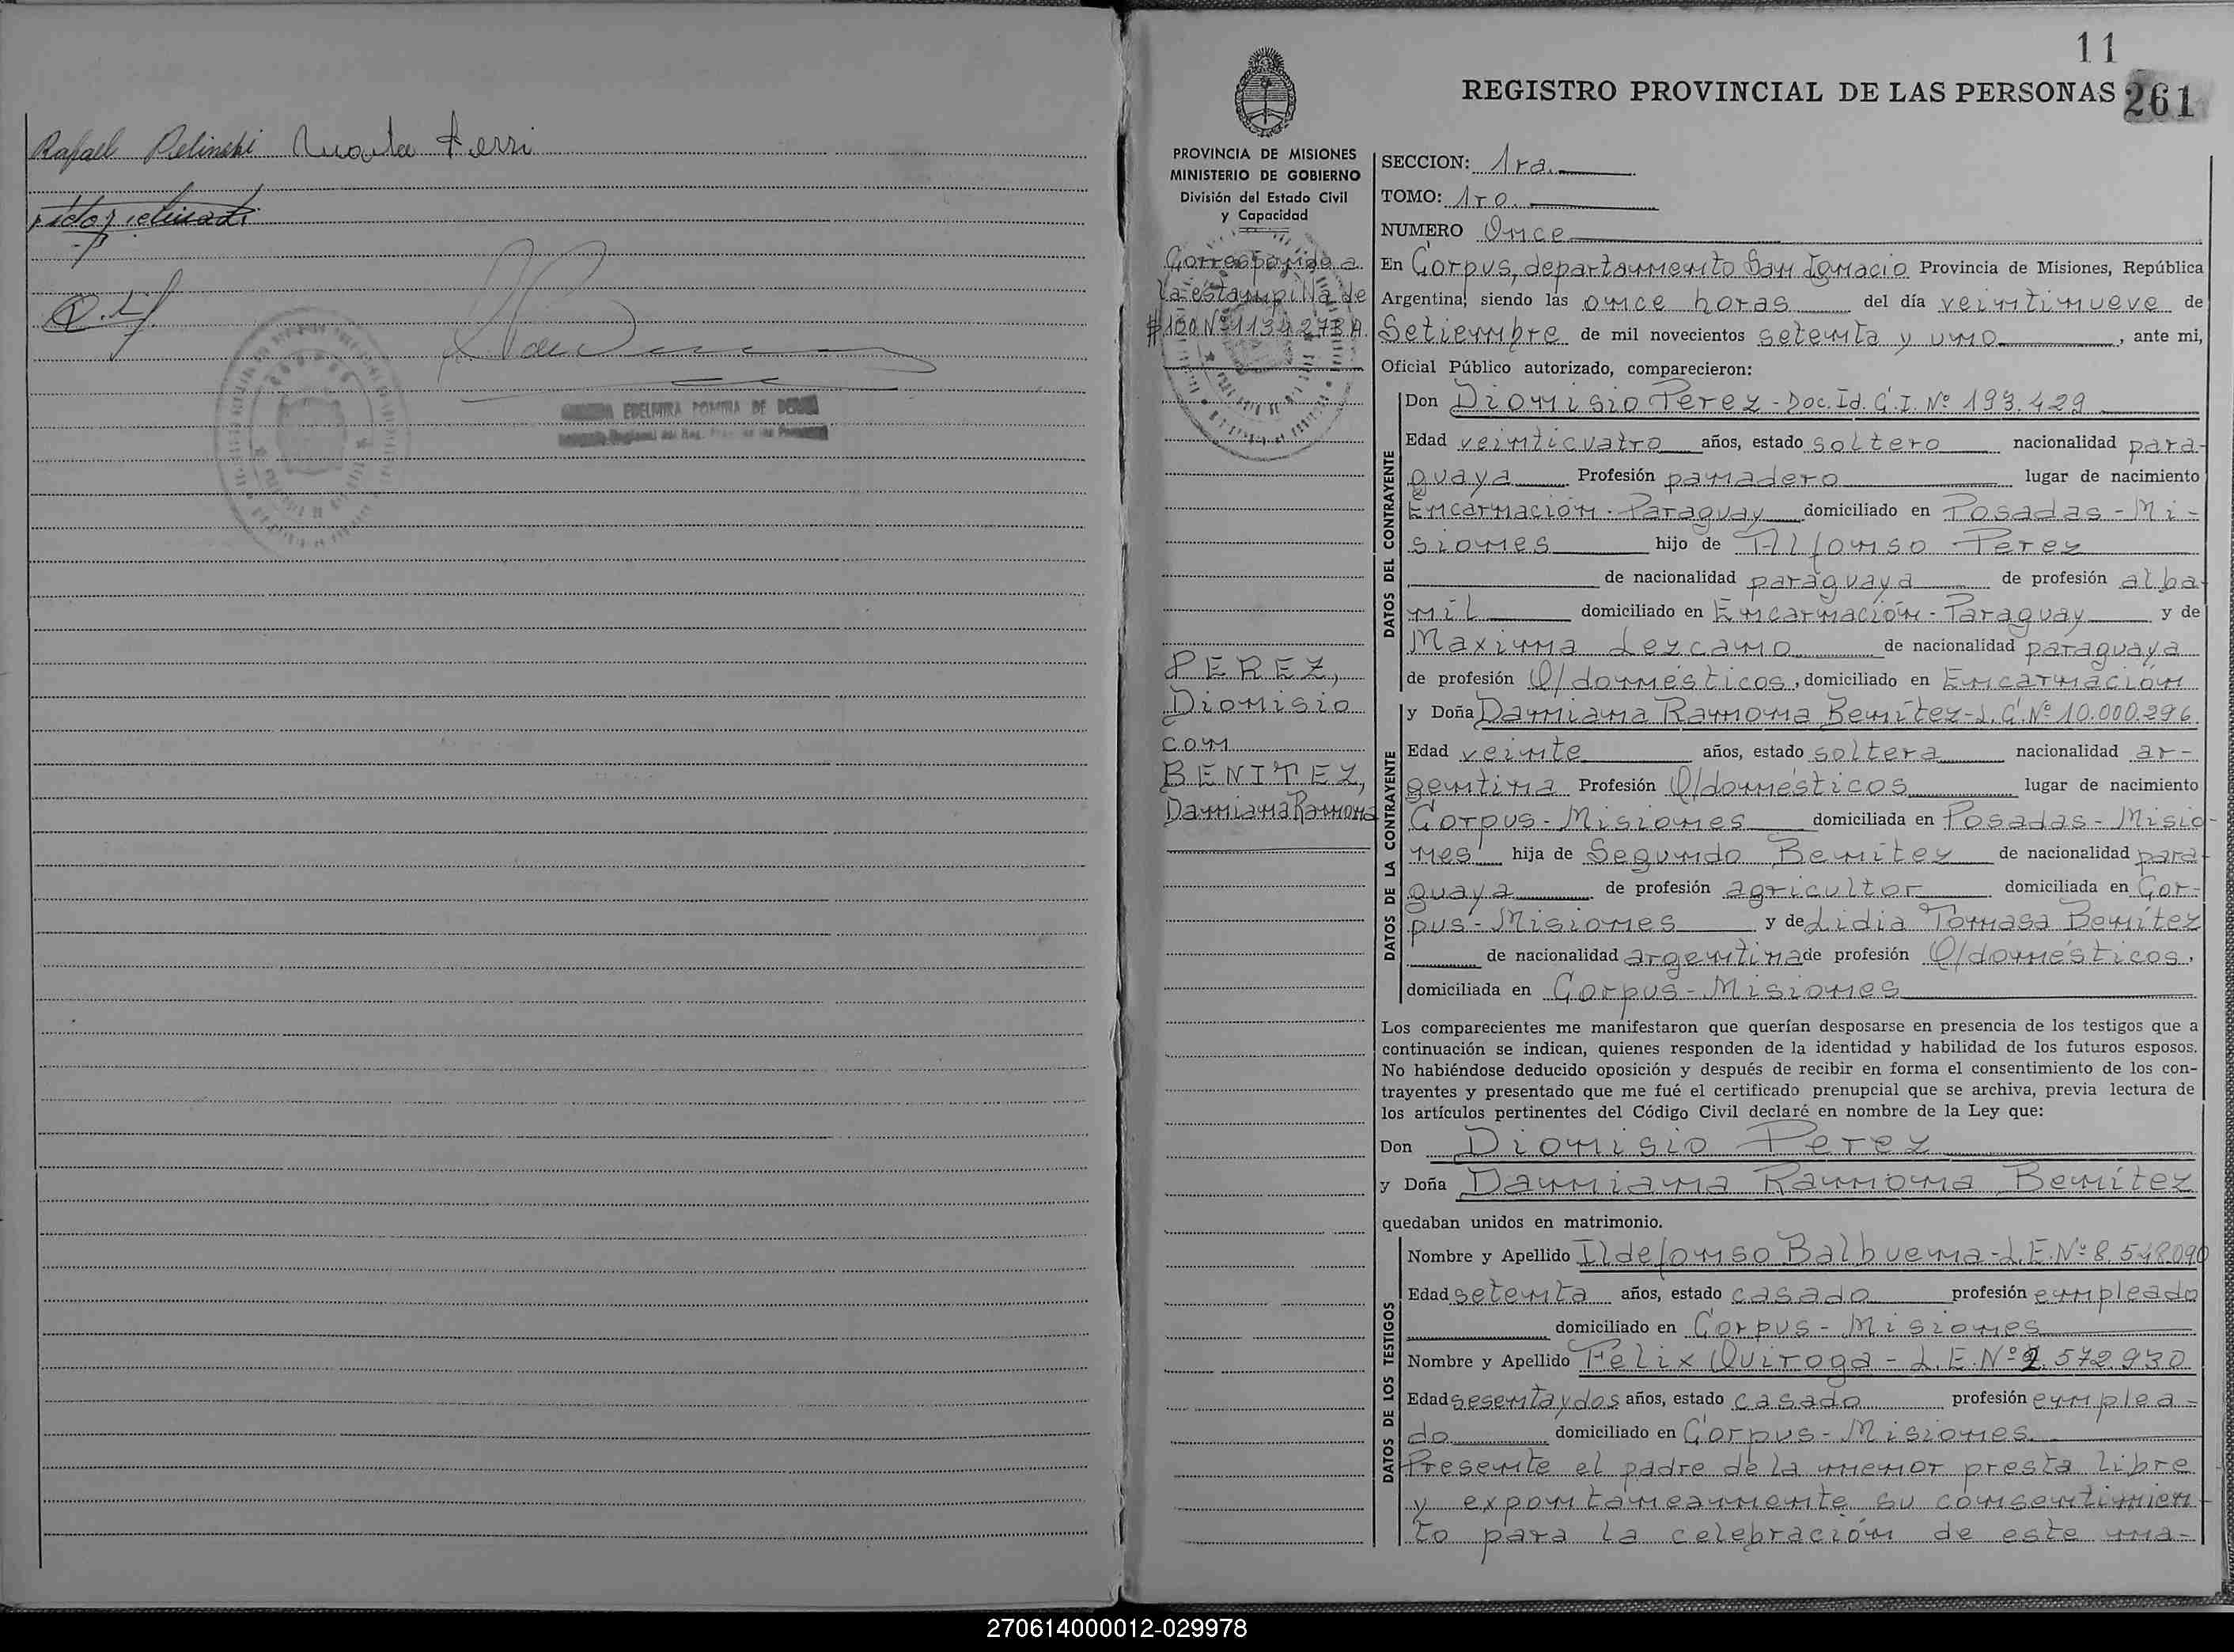 Rafael Pelinski
11
REGISTRO PROVINCIAL DE LAS PERSONAS 261
PROVINCIA DE MISIONES
MINISTERIO DE GOBIERNO
División del Estado Civil
y Capacidad
Corresponde a
la estampilla de
$100 Nº 1134273 A.
PEREZ,
Dionisio
con
BENITEZ,
Damiana Ramona
SECCION: 1ra.
TOMO: 1ro.
NUMERO Once
En Corpus, departamento San Ignacio Provincia de Misiones, República
Argentina, siendo las once horas del día veintinueve de
Setiembre de mil novecientos setenta y uno, ante mi,
Oficial Público autorizado, comparecieron:
DATOS DEL CONTRAYENTE
Don Dionisio Perez - Doc. Id. C.I. Nº 193.429
Edad veinticuatro años, estado soltero nacionalidad para-
guaya Profesión panadero lugar de nacimiento
Encarnación - Paraguay domiciliado en Posadas - Mi-
siones hijo de Alfonso Perez
de nacionalidad paraguaya de profesión alba-
nil domiciliado en Encarnación - Paraguay y de
Maxima Lezcano de nacionalidad paraguaya
de profesión Q/domésticos, domiciliado en Encarnación
DATOS DE LA CONTRAYENTE
y Doña Damiana Ramona Benítez - L.C. Nº 10.000.296
Edad veinte años, estado soltera nacionalidad ar-
gentina Profesión Q/domésticos lugar de nacimiento
Corpus - Misiones domiciliada en Posadas - Misio-
nes hija de Segundo Benítez de nacionalidad para-
guaya de profesión agricultor domiciliada en Cor-
pus - Misiones y de Lidia Tomasa Benítez
de nacionalidad argentina de profesión Q/domésticos,
domiciliada en Corpus - Misiones
Los comparecientes me manifestaron que querían desposarse en presencia de los testigos que a
continuación se indican, quienes responden de la identidad y habilidad de los futuros esposos.
No habiéndose deducido oposición y después de recibir en forma el consentimiento de los con-
trayentes y presentado que me fué el certificado prenupcial que se archiva, previa lectura de
los artículos pertinentes del Código Civil declaré en nombre de la Ley que:
Don Dionisio Perez
y Doña Damiana Ramona Benítez
quedaban unidos en matrimonio.
DATOS DE LOS TESTIGOS
Nombre y Apellido Ildefonso Balbuena - L.E. Nº 8.548.090
Edad setenta años, estado casado profesión empleado
domiciliado en Corpus - Misiones
Nombre y Apellido Felix Quiroga - L.E. Nº 2.572.930
Edad sesenta y dos años, estado casado profesión emplea-
do domiciliado en Corpus - Misiones
Presente el padre de la menor presta libre
y expontaneamente su consentimien-
to para la celebración de este ma-
270614000012-029978